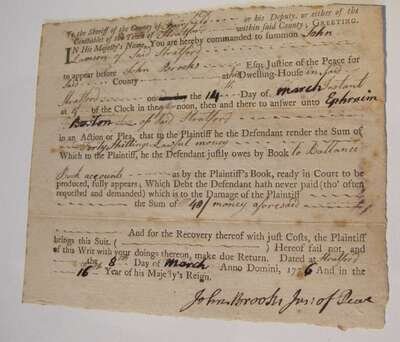 To the Sheriff of the County of Fairfield or his Deputy, or either of the
Constables of the Town of Stratford within said County, GREETING.
IN His Majesty's Name, You are hereby commanded to summon John
of Said Stratford
to appear before John Brooks Esq; Justice of the Peace for
Said County at his Dwelling-House in said
Stratford on the 14th Day of March Instant
at of the Clock in the noon, then and there to answer unto Ephraim
of said Stratford
in an Action or Plea, that to the Plaintiff he the Defendant render the Sum of
forty shillings Lawful money
Which to the Plaintiff, he the Defendant justly owes by Book to Ballance
Book accounts as by the Plaintiff's Book, ready in Court to be
produced, fully appears, Which Debt the Defendant hath never paid (tho' often
requested and demanded) which is to the Damage of the Plaintiff
the Sum of 40/ money aforesaid
And for the Recovery thereof with just Costs, the Plaintiff
brings this Suit. ( ) Hereof fail not, and
of this Writ with your doings thereon, make due Return. Dated at Stratford
the 8th Day of March Anno Domini, 1776 And in the
16th Year of his Majesty's Reign.
John Brooks Jus: of Peace